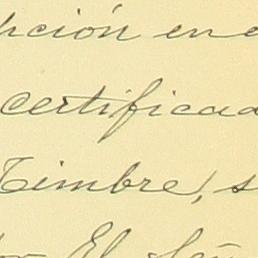 ción en
certificad
Timbre, s
El Señ